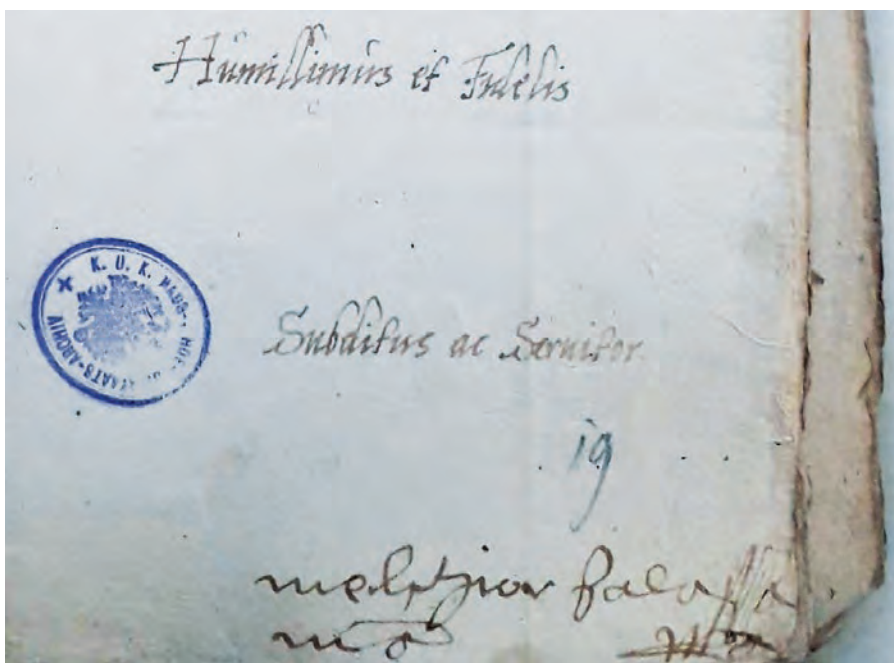 Humillimus et Fidelis
K. U. K. HAUS-, HOF- U. STAATS-ARCHIV
Subditus ac Seruitor
19
melchior balassa